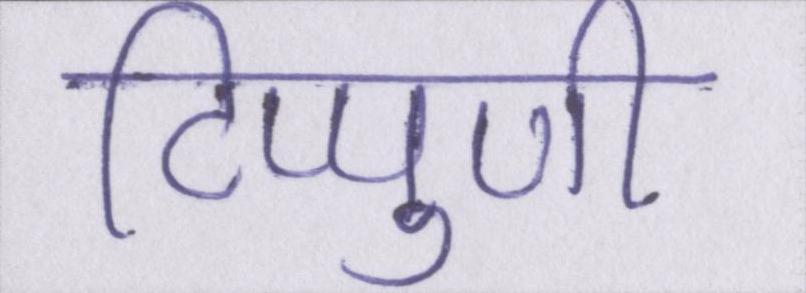 टिप्पुणी